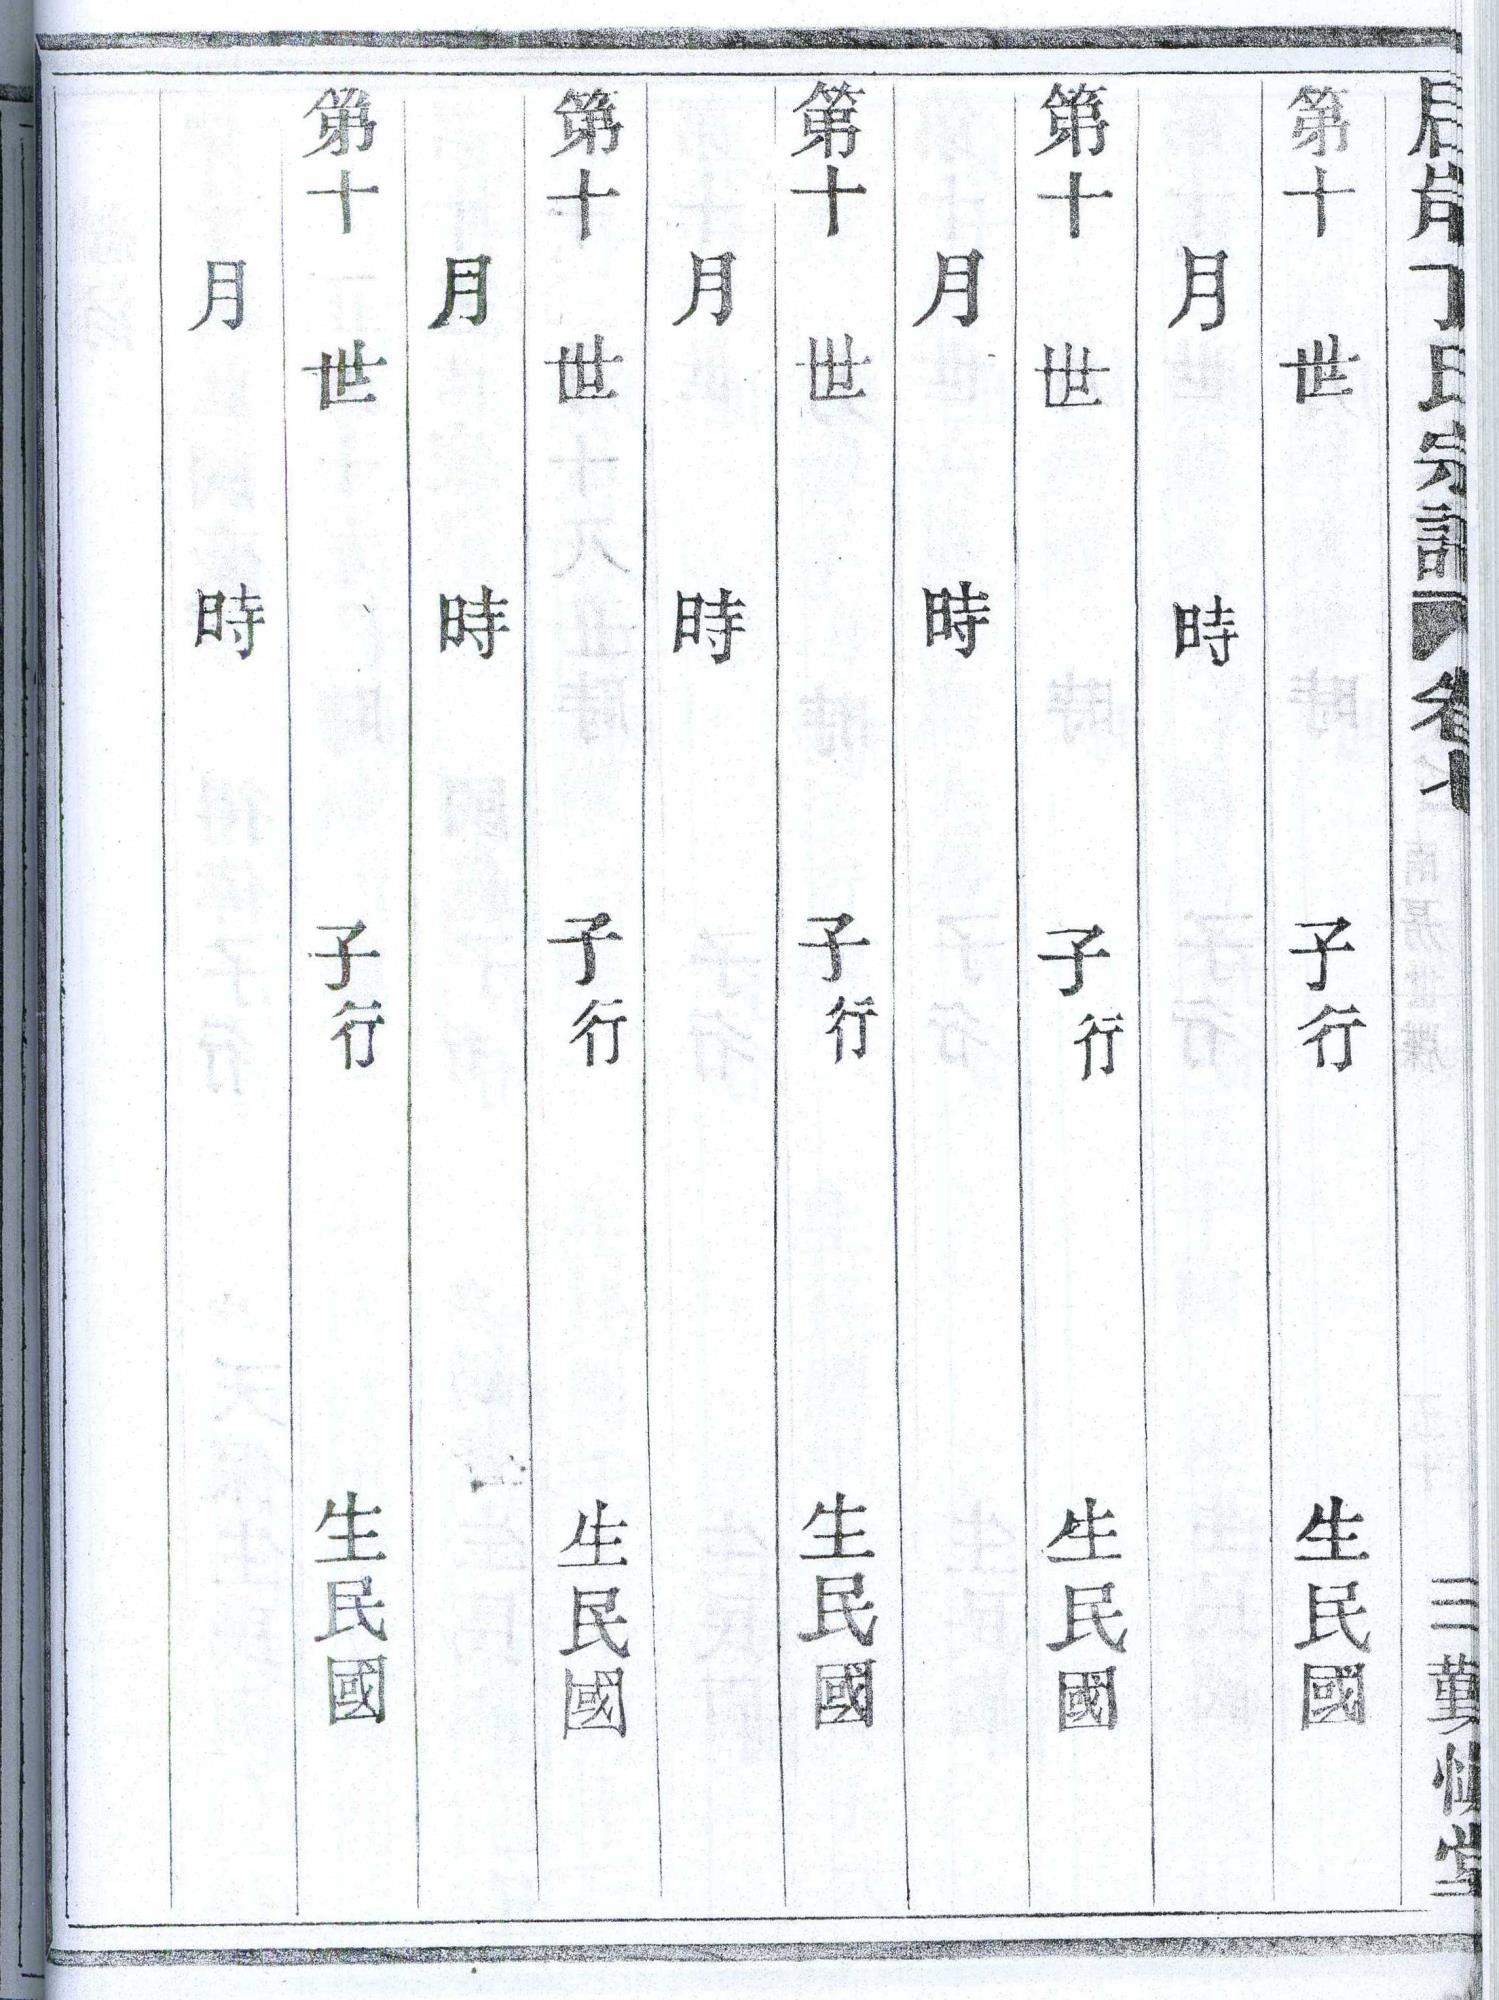 丁氏宗譜 卷
三 菫慎堂
第十 世 子行 生民國
月 時
第十 世 子行 生民國
月 時
第十 世 子行 生民國
月 時
第十 世 子行 生民國
月 時
第十 世 子行 生民國
月 時